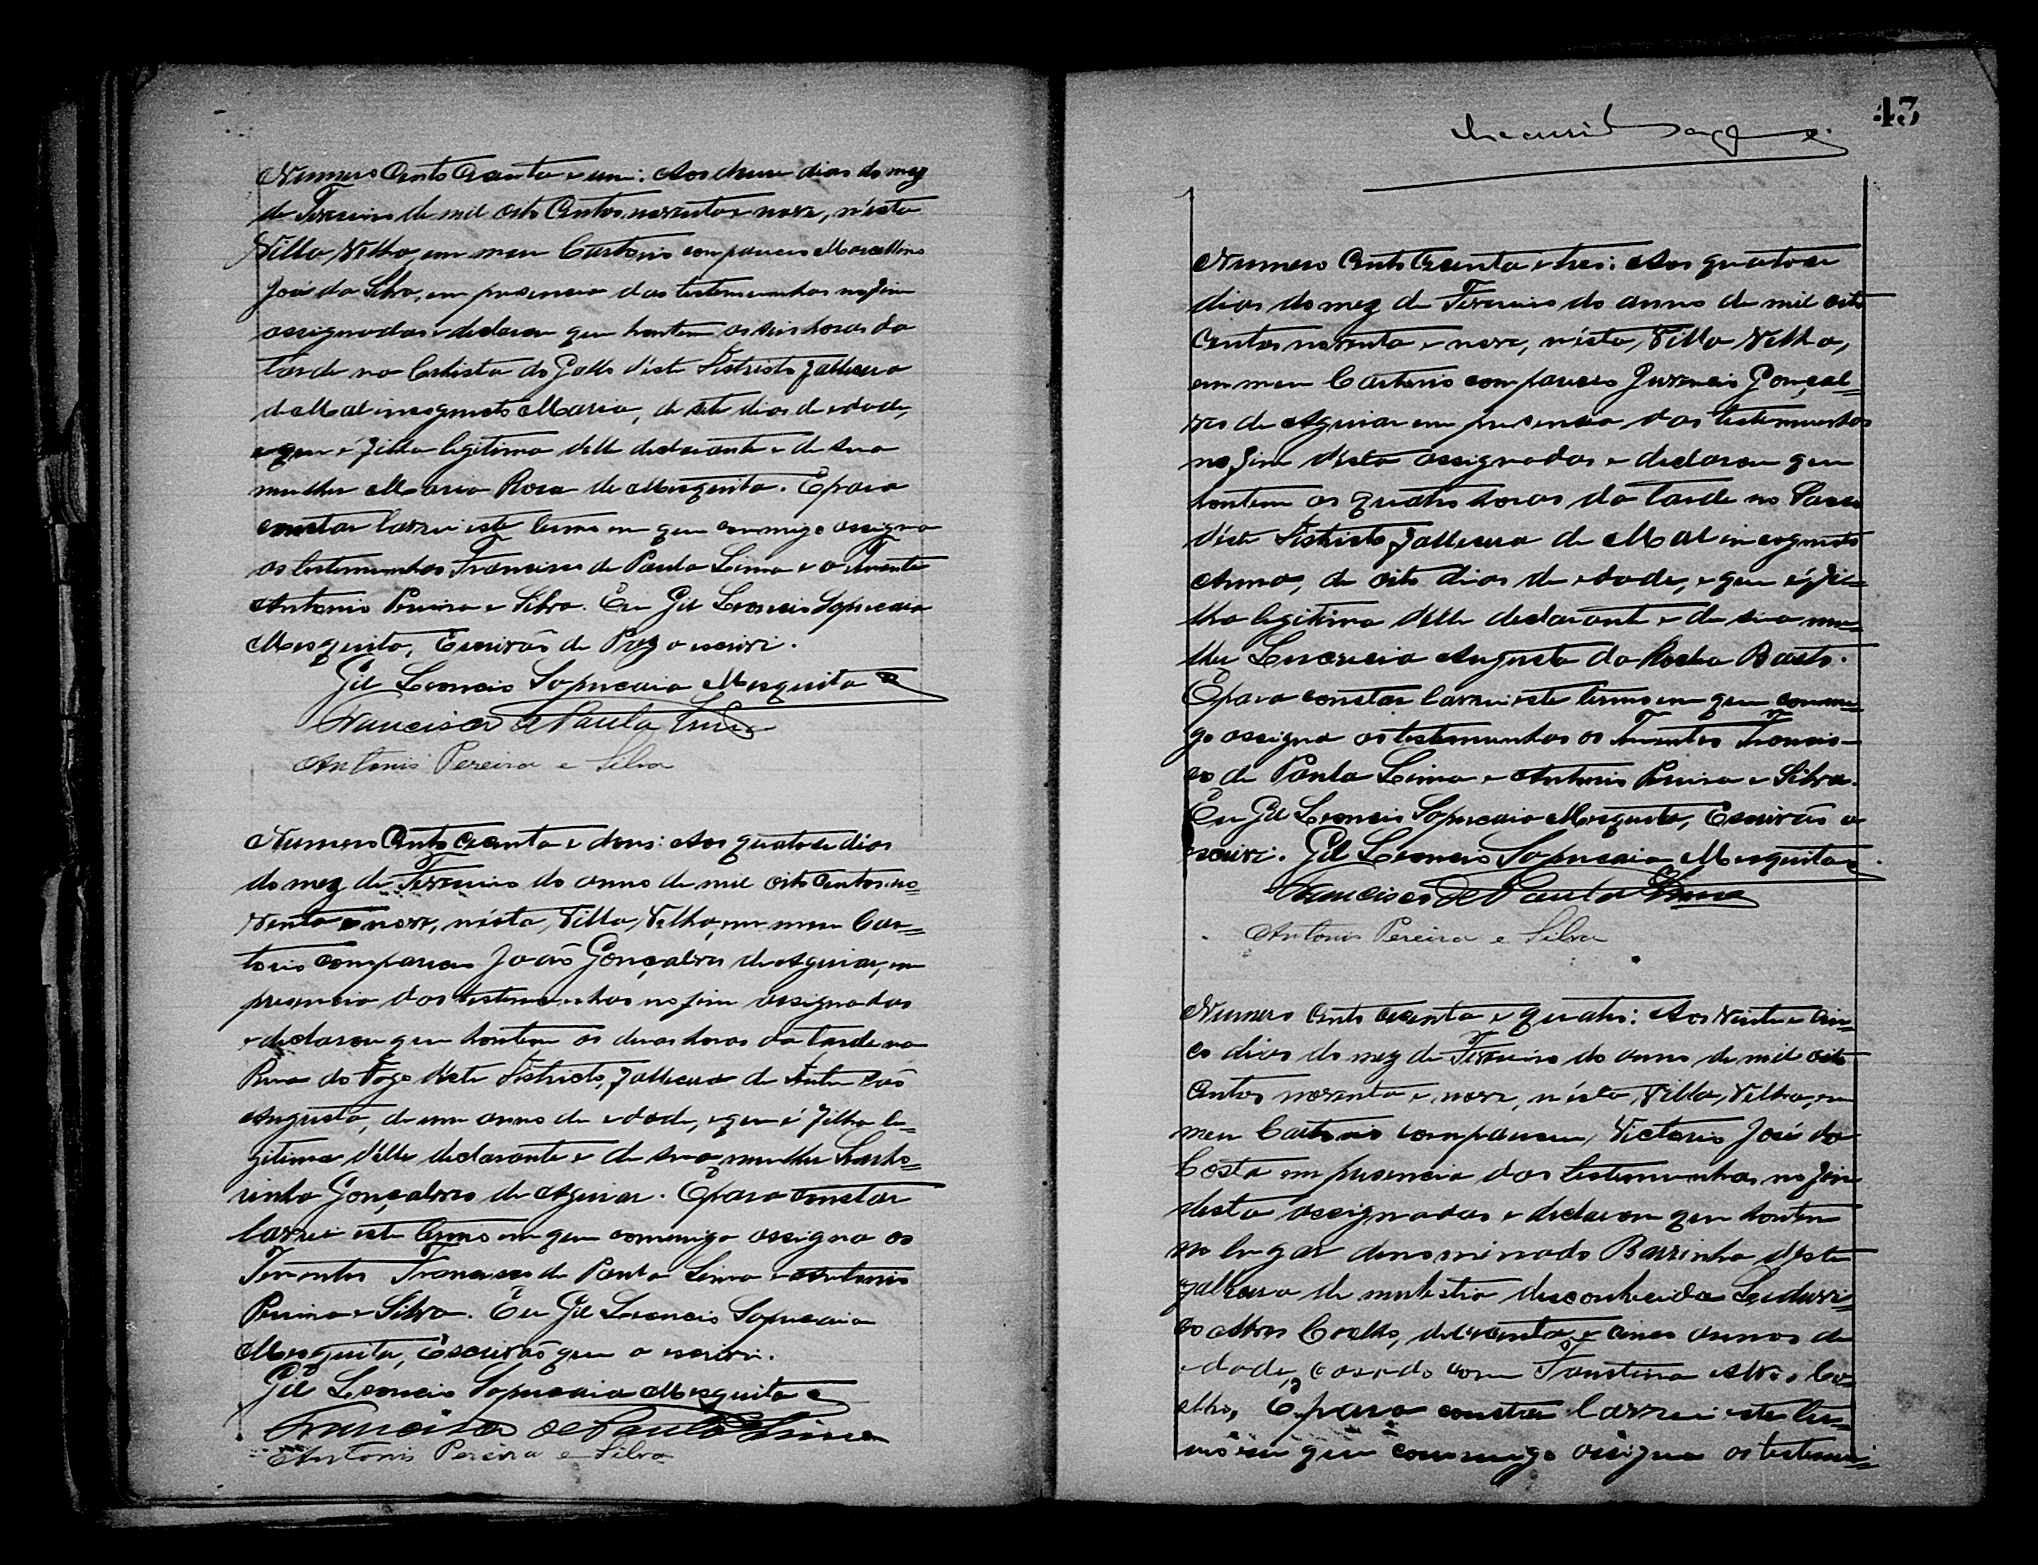 Numero Cento Cecenta e um: Aos doze dias do mez
de Fevereiro de mil oito Centos noventa e nove, n'ésta
Villa Velha, em meu Cartorio compareceu Marcellino
José da Silva, em presencia das testemunhas no fim
assignadas e declarou que hontem as seis horas da
tarde na do Gallo d'éste Districto falleceu
de Mal incognito Maria, de sete dias de edade,
e que é filha legitima d'elle declarante e de sua
mulher Maria Rosa de Mesquita. E para
constar lavrei este termo em que commigo assigna
as testemunhas Francisco de Paula Lima e o Tenente
Antonio Pereira e Silva. Eu Gil Leoncio Sapucaia
Mesquita, Escrivão de Paz o escrivi.
Gil Leoncio Sapucaia Mesquita
Francisco de Paula Lima
Antonio Pereira e Silva
Numero Cento Cecenta e dous: Aos quatorse dias
do mez de Fevereiro do anno de mil oito Centos no=
venta e nove, n'ésta Villa Velha, em meu Car=
torio compareceu João Gonçalves de Aguiar, em
presencia das testemunhas no fim assignadas
e declarou que hontem as duas horas da tarde na
Rua do Fogo d'éste Districto, falleceu de
Augusta, de um anno de edade, e que é filha le=
gitima d'elle declarante e de sua mulher
rinha Gonçalves de Aguiar. E para constar
lavrei este termo em que commigo assigna os
Tenentes Francisco de Paula Lima e Antonio
Pereira e Silva. Eu Gil Leoncio Sapucaia
Mesquita, Escrivão que o escrivi.
Gil Leoncio Sapucaia Mesquita
Francisco de Paula Lima
Antonio Pereira e Silva
43
Numero Cento Cecenta e tres: Aos quatorse
dias do mez de Fevereiro do anno de mil oito
Centos noventa e nove, n'ésta Villa Velha,
em meu Cartorio compareceu Juvencio Gonçal=
ves de Aguiar em presencia das testemunhas
no fim d'esta assignadas e declarou que
hontem as quatro horas da tarde no
d'éste Districto falleceu de Mal incognito
Anna, de oito dias de edade, e que é fi=
lha legitima d'elle declarante e de sua mu=
lher Lucrecia Augusta da Rocha Basto.
E para constar lavrei este termo em que commi=
go assigna as testemunhas os Tenentes Francis=
co de Paula Lima e Antonio Pereira e Silva.
Eu Gil Leoncio Sapucaia Mesquita, Escrivão o
escrivi. Gil Leoncio Sapucaia Mesquita
Francisco de Paula Lima
Antonio Pereira e Silva
Numero Cento Cecenta e quatro: Aos Vinte e Cin=
co dias do mez de Fevereiro do anno de mil oito
Centos noventa e nove, n'ésta Villa Velha, em
meu Cartorio compareceu Victorio José da
Costa em presencia das testemunhas no fim
desta assignadas e declarou que hontem
no lugar denominado Barrinha d'este
falleceu de molestia desconhecida
co Alves Coelho, de Cecenta e cinco annos de
edade, casado com Faustina Alves Co=
elho, E para constar lavrei este ter=
mo em que commigo assigna as testemu=